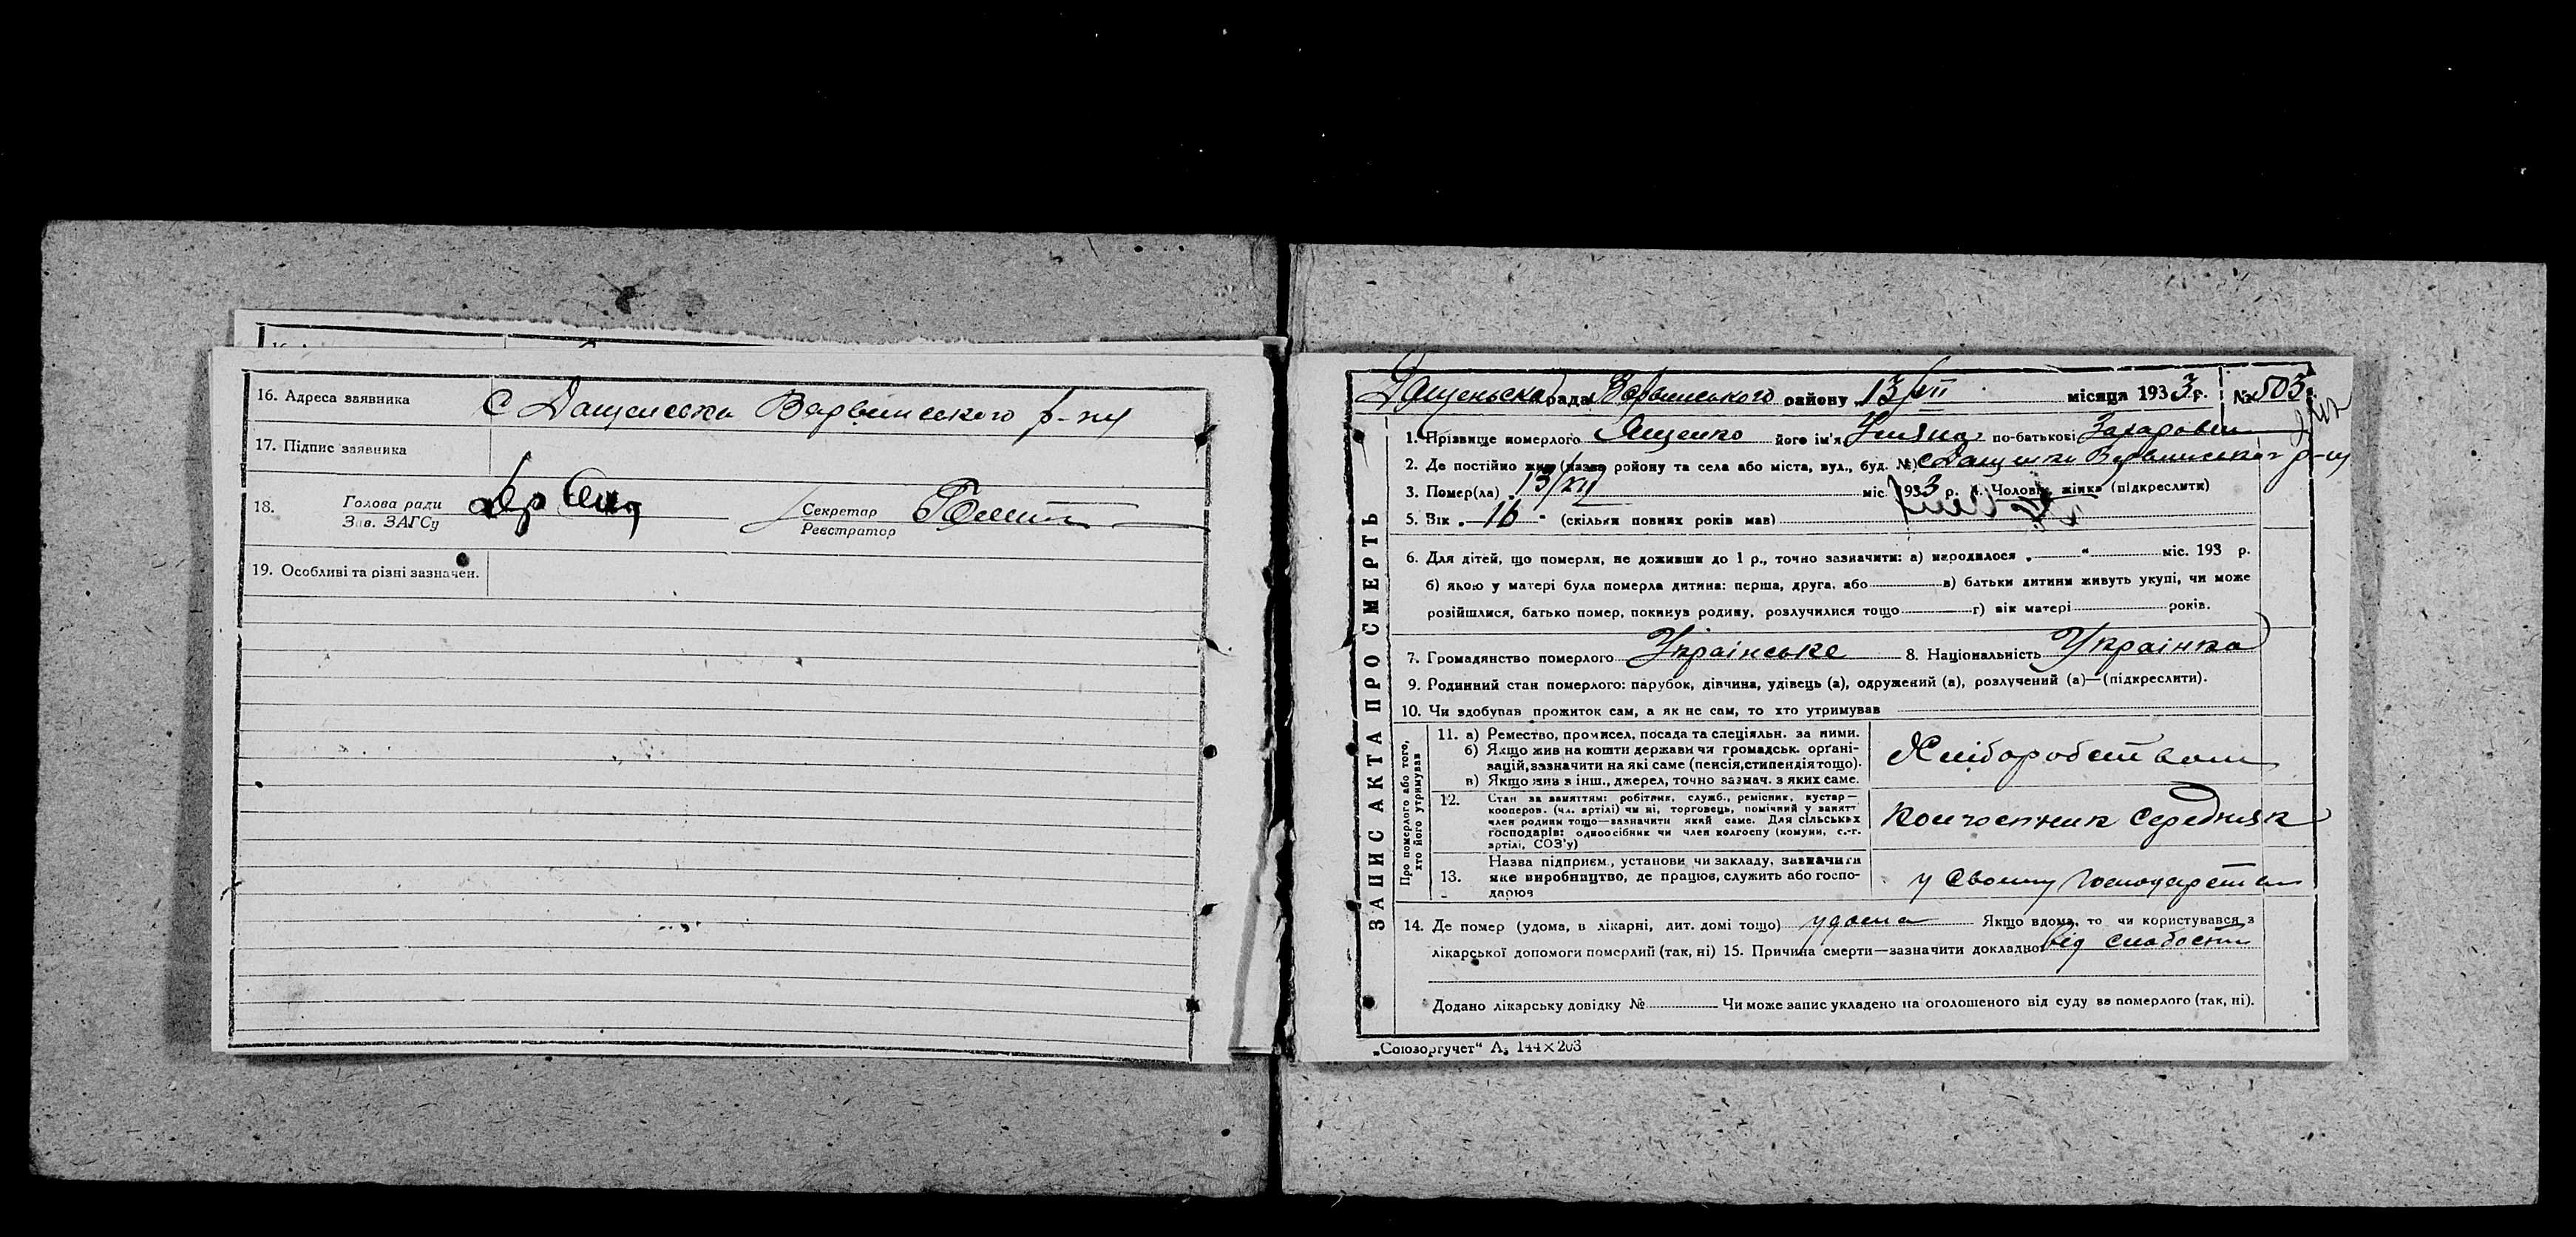 16. Адреса заявника С Дащенська Варвинського р-ну
17. Підпис заявника
18. Голова ради
Зав. ЗАГСу
Секретар
Реєстратор
19. Особливі та різні зазначен.
ЗАПИС АКТА ПРО СМЕРТЬ
Дащеньска рада Варвинського району 13/XII місяця 1933 р. № 503
1. Прізвище померлого Ященко його ім'я по-батькові
2. Де постійно жив (назва району та села або міста, вул., буд. №) с Дащенки Варвинського р-ну
3. Помер(ла) 13/XII міс. 1933 р. 4. Чоловік, жінка (підкреслити)
5. Вік „ 16 " (скільки повних років мав)
6. Для дітей, що померли, не доживши до 1 р., точно зазначити: а) народилося „ " міс. 193 р.
б) якою у матері була померла дитина: перша, друга, або в) батьки дитини живуть укупі, чи може
розійшлися, батько помер, покинув родину, розлучилися тощо г) вік матері років.
7. Громадянство померлого Українське 8. Національність Українка
9. Родинний стан померлого: парубок, дівчина, удівець (а), одружений (а), розлучений (а)—(підкреслити).
10. Чи здобував прожиток сам, а як не сам, то хто утримував
Про померлого або того,
хто його утримував
11. а) Ремество, промисел, посада та спеціяльн. за ними.
б) Якщо жив на кошти держави чи громадськ. орґані-
зацій, зазначити на які саме (пенсія, стипендія тощо).
в) Якщо жив з інш., джерел, точно зазнач. з яких саме.
Хліборобством
12. Стан за заняттям: робітник, служб., ремісник, кустар—
кооперов. (чл. артілі) чи ні, торговець, помічний у занятт
член родини тощо—зазначити який саме. Для сільських
господарів: одноосібник чи член колгоспу (комуни, с.-г.
артілі, СОЗ'у)
Колгоспник Середняк
13. Назва підприєм., установи чи закладу, зазначити
яке виробництво, де працює, служить або госпо-
дарює
у своему господарстві
14. Де помер (удома, в лікарні, дит. домі тощо) удома Якщо вдома, то чи користувався з
лікарської допомоги померлий (так, ні) 15. Причина смерти—зазначити докладно від слабости
Додано лікарську довідку № Чи може запис укладено на оголошеного від суду за померлого (так, ні).
„Союзоргучет" А5 144×203